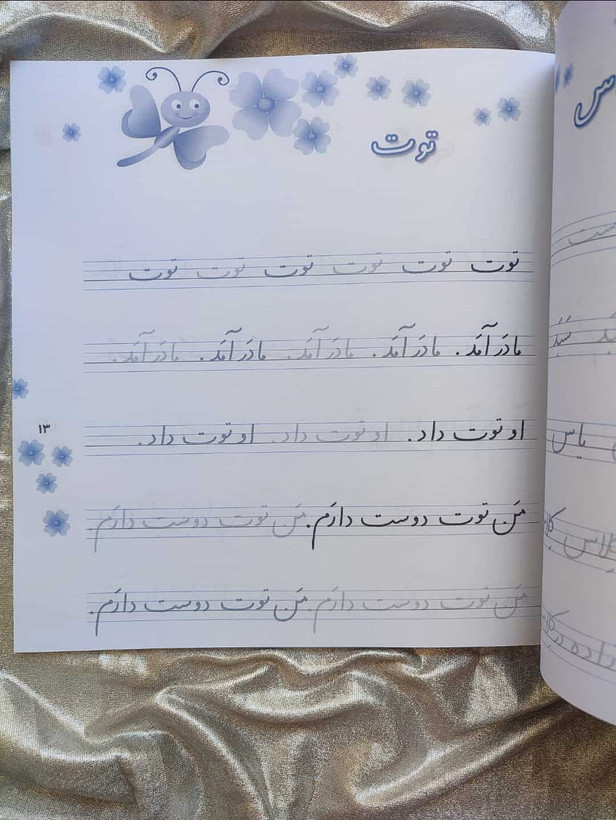 توت
توت توت توت توت توت توت
مادَر آمَد. مادَر آمَد. مادَر آمَد. مادَر آمَد. مادَر آمَد.
او توت داد. او توت داد. او توت داد.
۱۳
مَن توت دوست دارَم. مَن توت دوست دارَم
مَن توت دوست دارَم. مَن توت دوست دارَم.
سَبَد
یاس
کلاس
داده